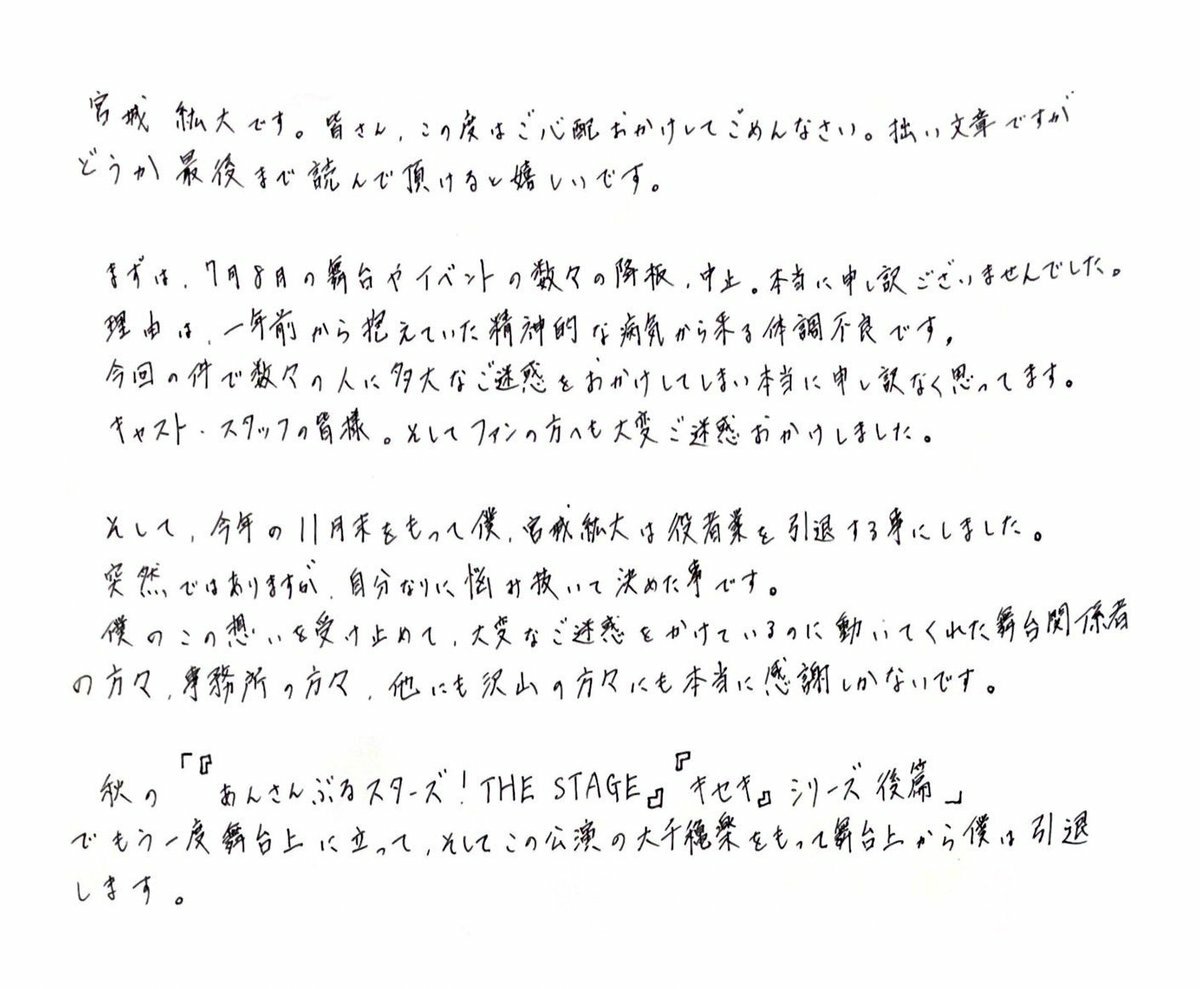 宮城 紘大です。皆さん、この度はご心配おかけしてごめんなさい。拙い文章ですが
どうか最後まで読んで頂けると嬉しいです。
まずは、7月8月の舞台やイベントの数々の降板、中止。本当に申し訳ございませんでした。
理由は、一年前から抱えていた精神的な病気から来る体調不良です。
今回の件で数々の人に多大なご迷惑をおかけしてしまい本当に申し訳なく思ってます。
キャスト・スタッフの皆様。そしてファンの方へも大変ご迷惑おかけしました。
そして、今年の11月末をもって僕、宮城紘大は役者業を引退する事にしました。
突然ではありますが、自分なりに悩み抜いて決めた事です。
僕のこの想いを受け止めて、大変なご迷惑をかけているのに動いてくれた舞台関係者
の方々、事務所の方々、他にも沢山の方々にも本当に感謝しかないです。
秋の「『あんさんぶるスターズ!THE STAGE』『キセキ』シリーズ後篇」
でもう一度舞台上に立って、そしてこの公演の大千穐楽をもって舞台上から僕は引退
します。